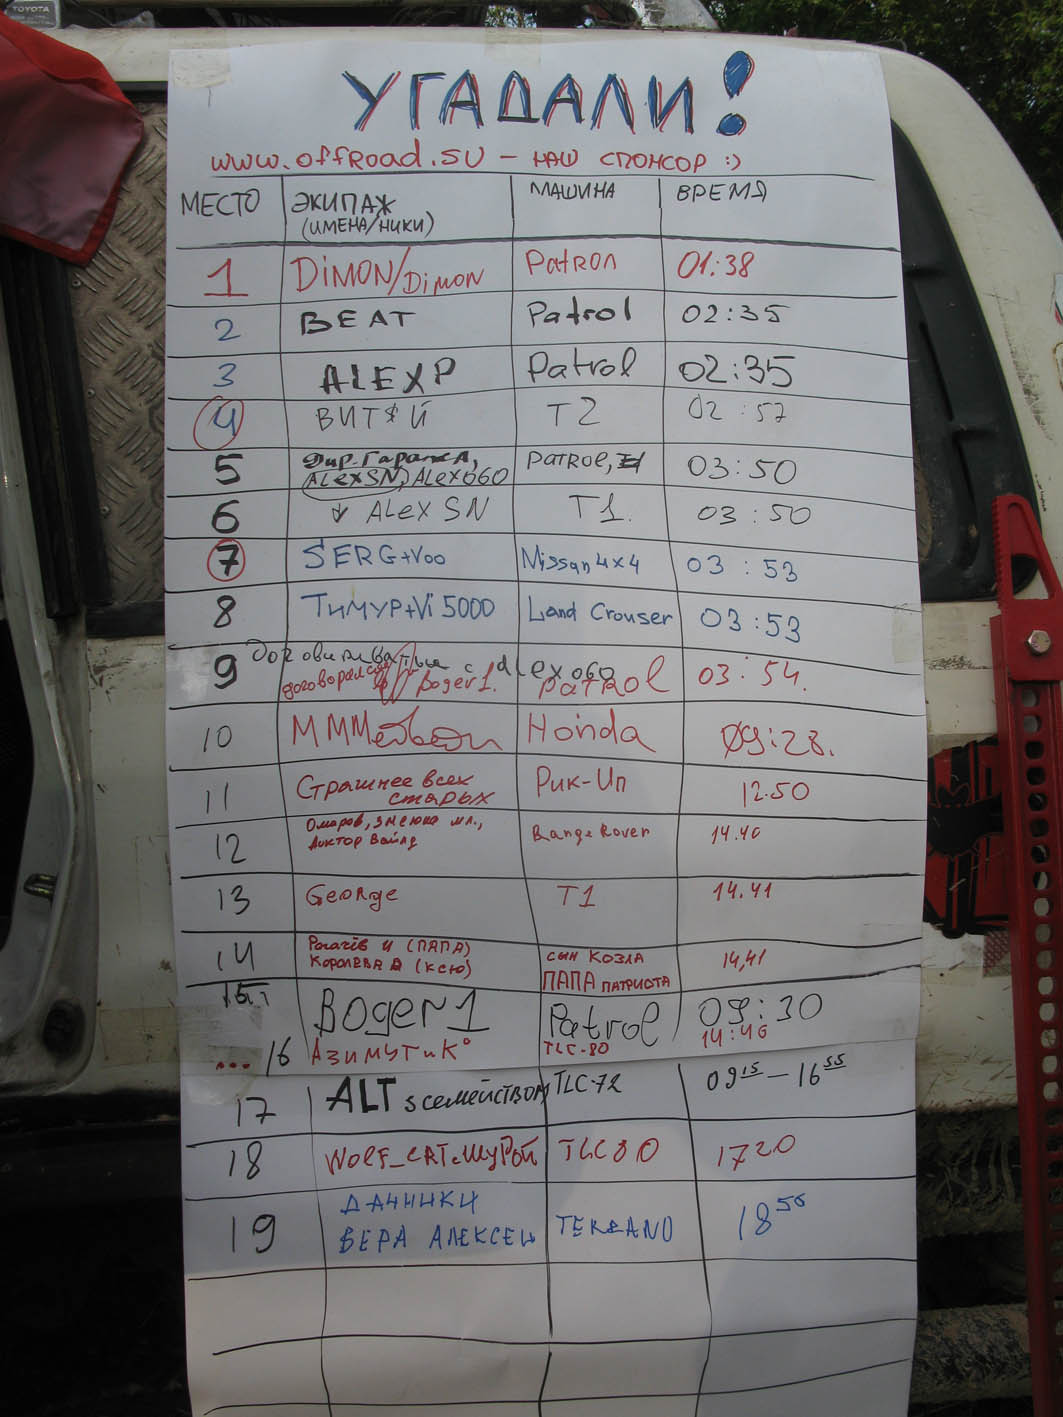 TOYOTA
УГАДАЛИ!
www.offRoad.SU - НАШ СПОНСОР :)
МЕСТО ЭКИПАЖ (ИМЕНА/НИКИ) МАШИНА ВРЕМЯ
1 DiMON/DiMON Patrол 01:38
2 BEAT Patrol 02:35
3 ALEXP Patrol 02:35
4 T2 02:57
5 Дир. Гаража, ALEXSN, ALEX060 PATROL, 03:50
6 ALEX SN T1. 03:50
7 SERG+Voo Nissan 4x4 03:53
8 ТИМУР+Vi 5000 Land Crouser 03:53
9 с alex060
Boger1. PATROL 03:54.
10 Honda 09:28.
11 Страшнее всех старых Рик-Ип 12.50
12 Омаров, змеюка мл., Range Rover 14.40
13 GeoRge T1 14.41
14 Рогачёв И (ПАПА) СЫН КОЗЛА 14,41
КОРОЛЕВА Д (КСЮ) ПАПА ПАТРИОТА
15 Boger1 Patrol 09:30
... 16 АЗИМУТ и К° TLC-80 14:46
17 ALT s семейством TLC-72 09 15 – 16 55
18 WOLF_CAT с МУРой TLC80 17 20
19 ДАЧНИКИ
ВЕРА АЛЕКСЕЙ TERRANO 18 50